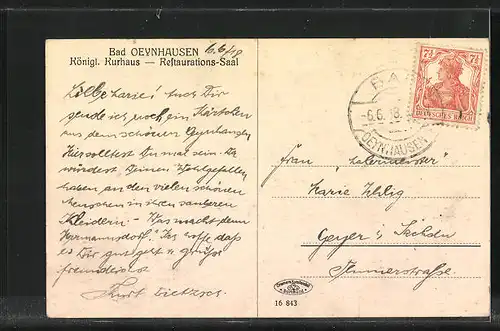 Bad OEYNHAUSEN 6/6/18
Königl. Kurhaus — Restaurations-Saal
Liebe Marie! Auch Dir
sende ich noch ein Kärtchen
aus dem schönen Oeynhausen
Hier solltest Du mal sein. Du
würdest Deinen Wohlgefallen
haben an den vielen schönen
Menschen in ihren sauberen
Kleidern. - Was macht denn
Hermannsdorf? Ich hoffe daß
es Dir gut geht u. grüße
freundlichst
Kurt
7½ 7½
DEUTSCHES REICH
BAD
-6.6.18.
OEYNHAUSEN
Frau
Marie
Geyer i. Sachsen
straße
16 843